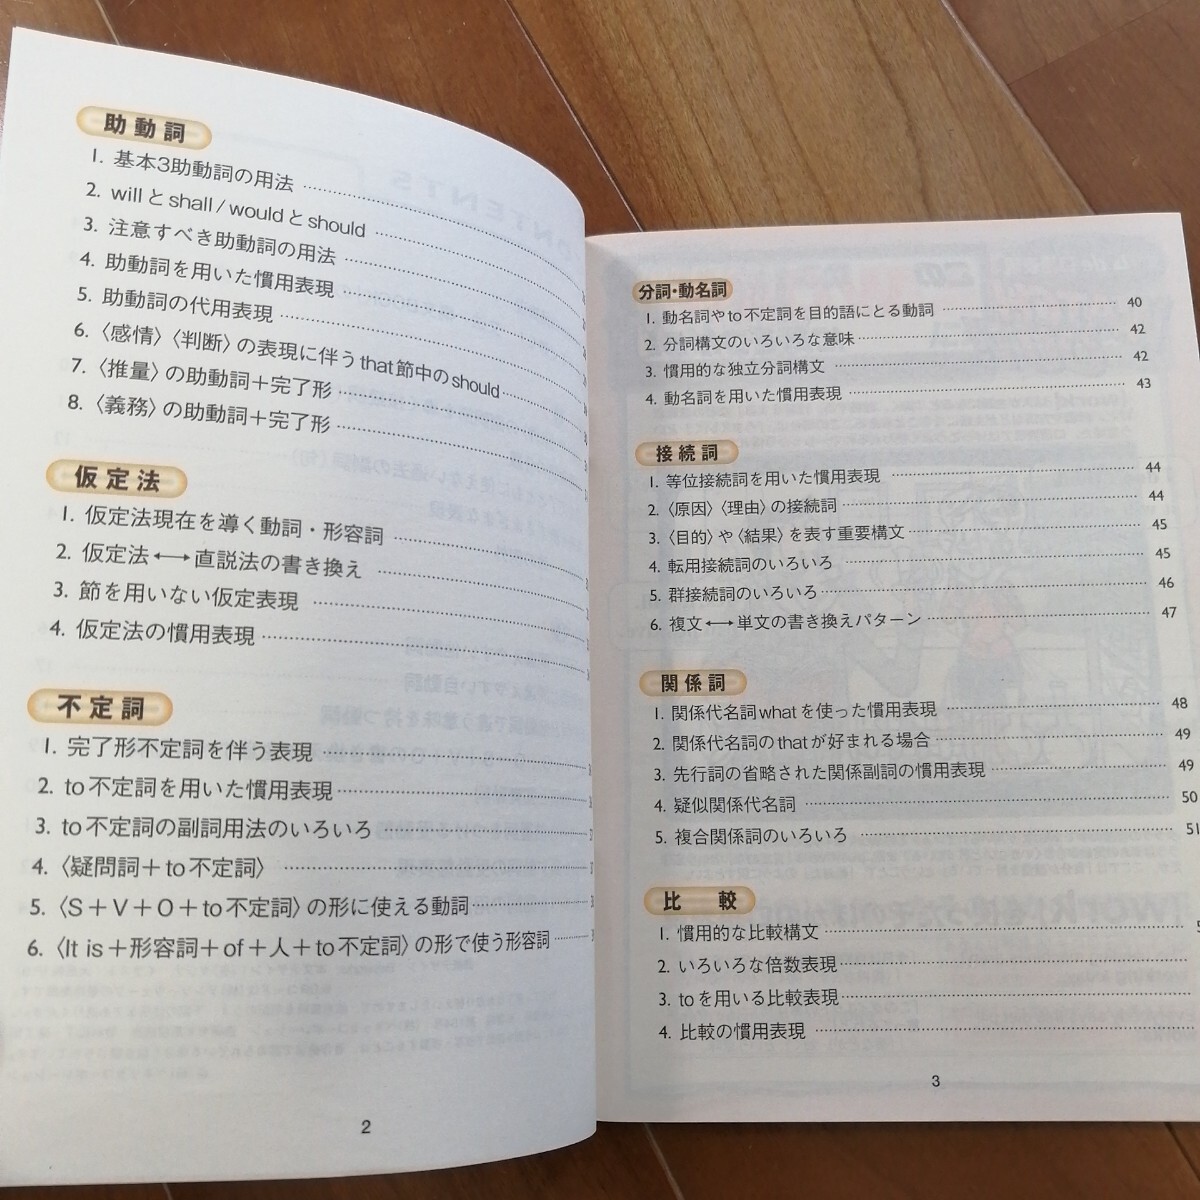 助動詞
1. 基本3助動詞の用法
2. willとshall / wouldとshould
3. 注意すべき助動詞の用法
4. 助動詞を用いた慣用表現
5. 助動詞の代用表現
6. 〈感情〉〈判断〉の表現に伴うthat節中のshould
7. 〈推量〉の助動詞+完了形
8. 〈義務〉の助動詞+完了形
仮定法
1. 仮定法現在を導く動詞・形容詞
2. 仮定法⟷直説法の書き換え
3. 節を用いない仮定表現
4. 仮定法の慣用表現
不定詞
1. 完了形不定詞を伴う表現
2. to不定詞を用いた慣用表現
3. to不定詞の副詞用法のいろいろ
4. 〈疑問詞+to不定詞〉
5. 〈S+V+O+to不定詞〉の形に使える動詞
6. 〈It is+形容詞+of+人+to不定詞〉の形で使う形容詞
2
分詞・動名詞
1. 動名詞やto不定詞を目的語にとる動詞 40
2. 分詞構文のいろいろな意味 42
3. 慣用的な独立分詞構文 42
4. 動名詞を用いた慣用表現 43
接続詞
1. 等位接続詞を用いた慣用表現 44
2. 〈原因〉〈理由〉の接続詞 44
3. 〈目的〉や〈結果〉を表す重要構文 45
4. 転用接続詞のいろいろ 45
5. 群接続詞のいろいろ 46
6. 複文⟷単文の書き換えパターン 47
関係詞
1. 関係代名詞whatを使った慣用表現 48
2. 関係代名詞のthatが好まれる場合 49
3. 先行詞の省略された関係副詞の慣用表現 49
4. 疑似関係代名詞 50
5. 複合関係詞のいろいろ 51
比 較
1. 慣用的な比較構文
2. いろいろな倍数表現
3. toを用いる比較表現
4. 比較の慣用表現
3